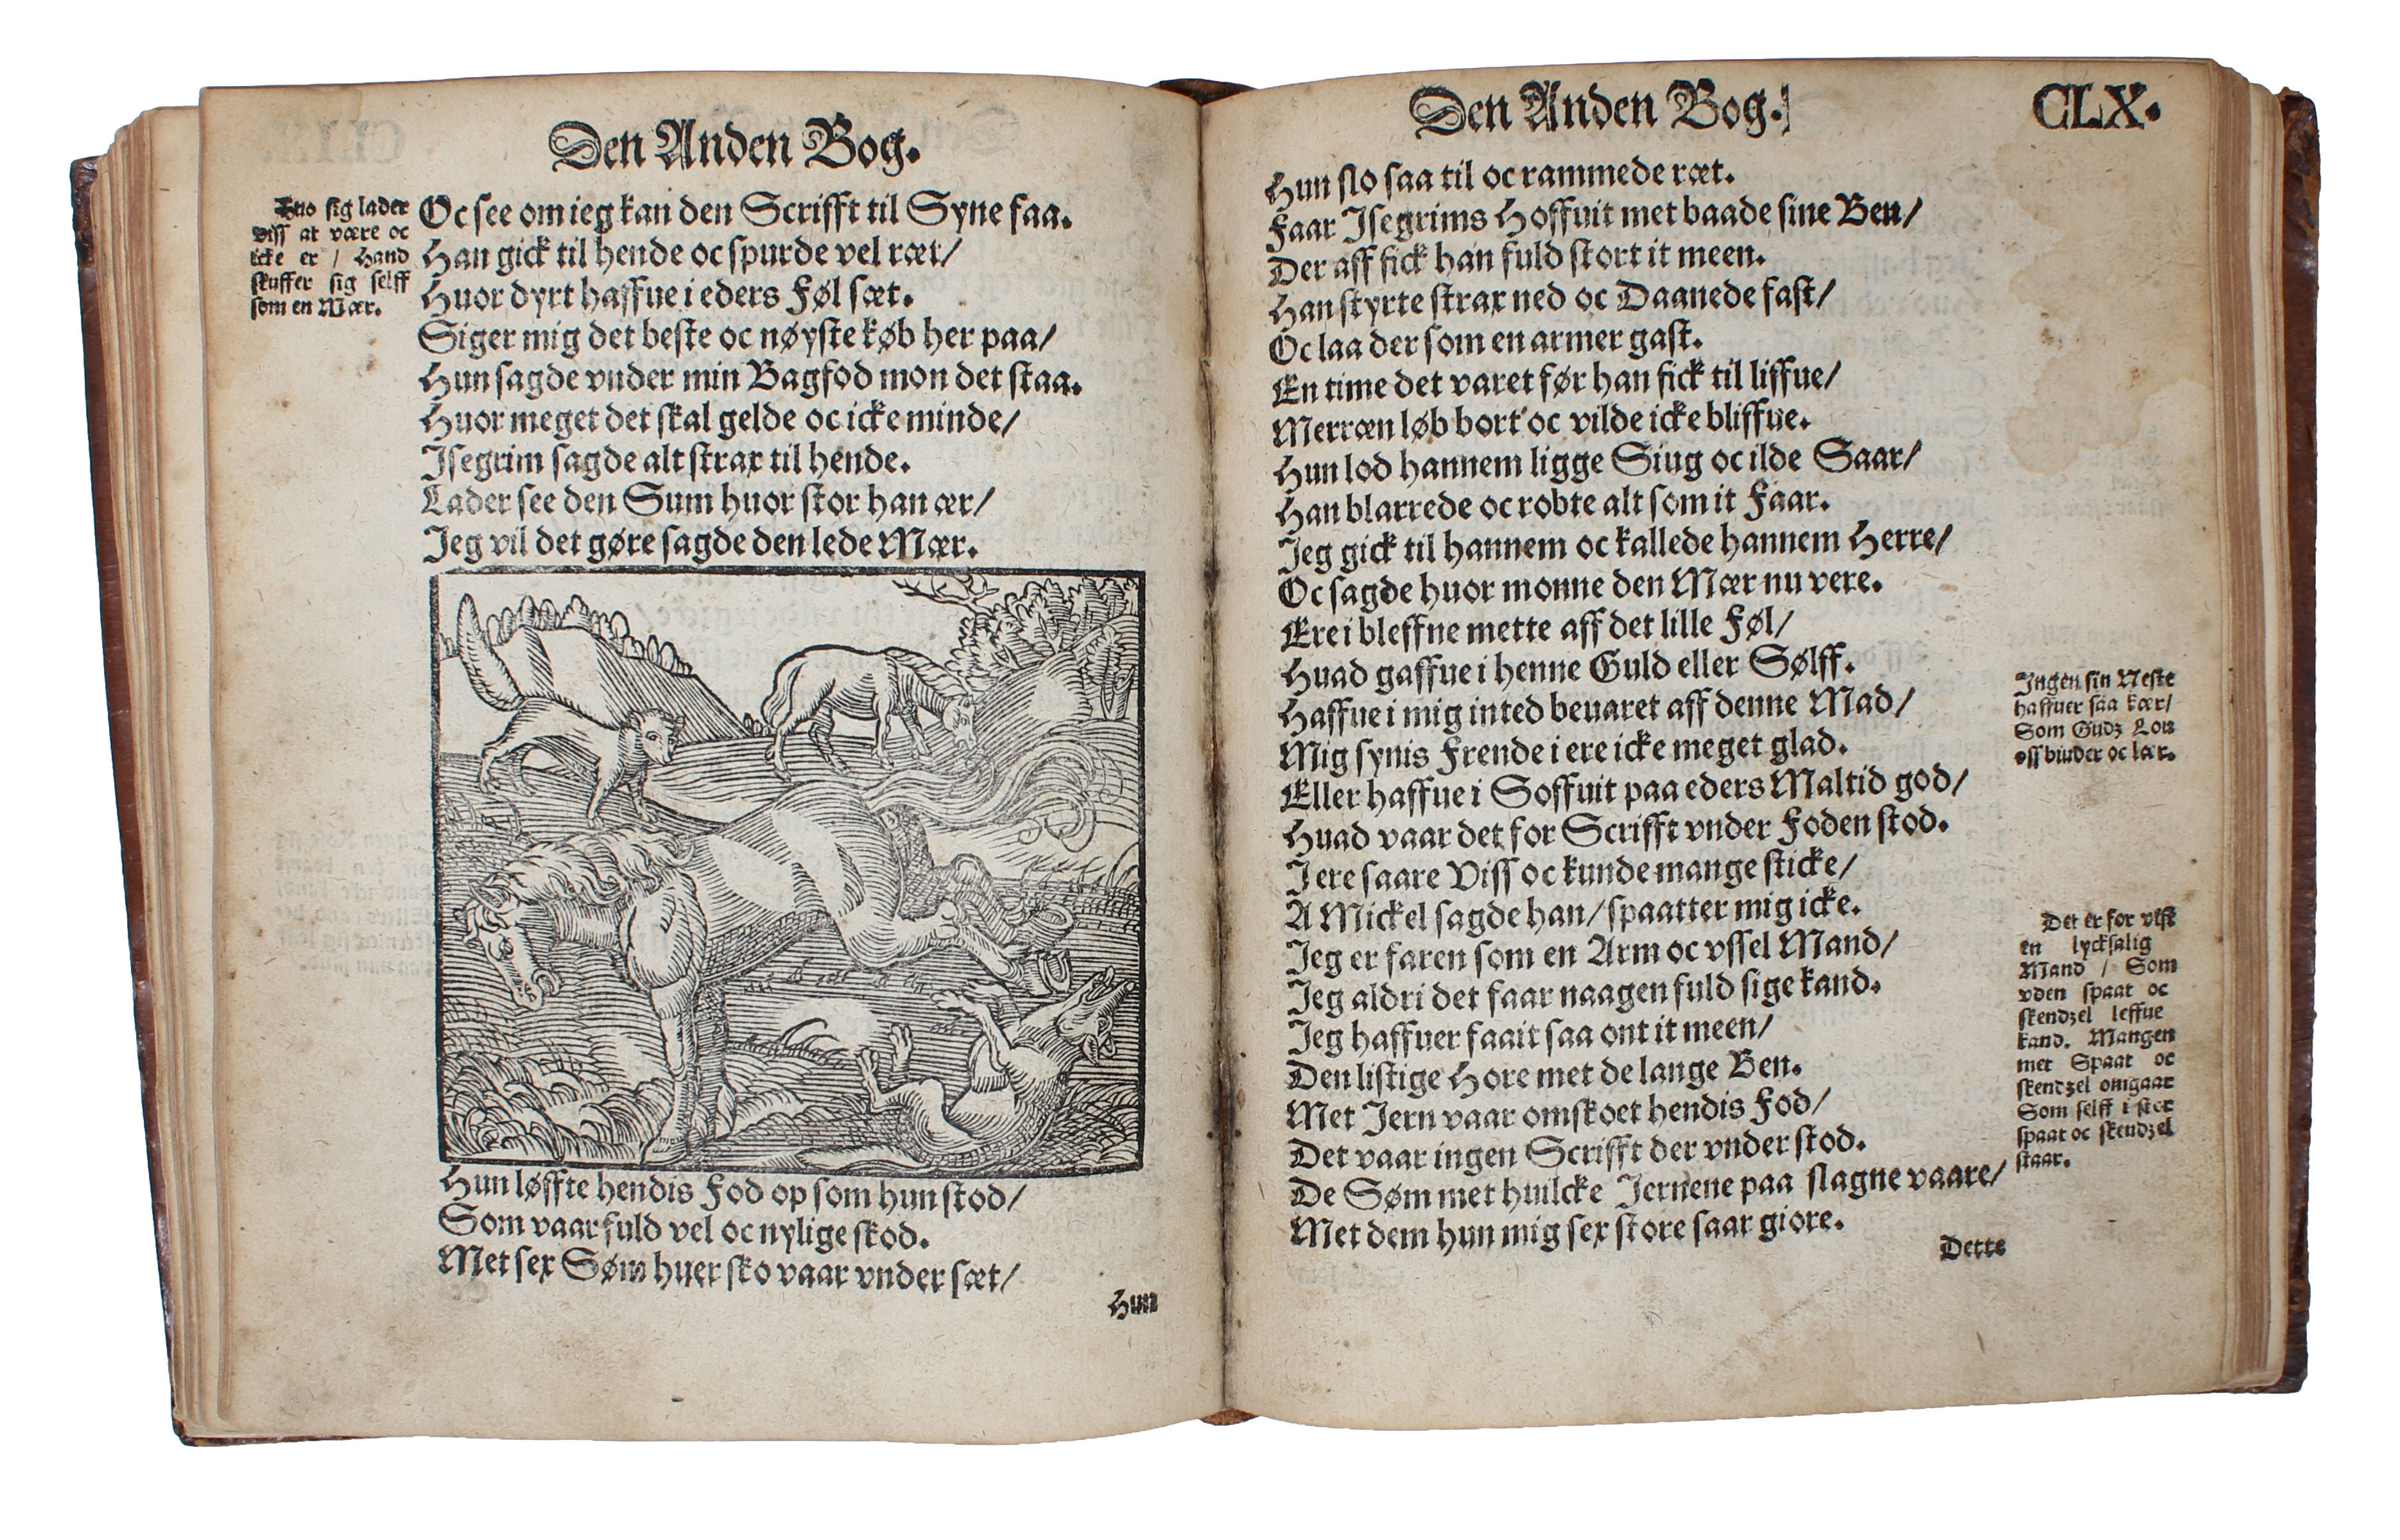 Den Anden Bog.
Huo sig lader
viss at være oc
icke er / Hand
skuffer sig selff
som en Mær.
Oc see om ieg kan den Scrifft til Syne faa.
Han gick til hende oc spurde vel ræt/
Huor dyrt haffue i eders Føl sæt.
Siger mig det beste oc nøyste køb her paa/
Hun sagde vnder min Bagfod mon det staa.
Huor meget det skal gelde oc icke minde/
Isegrim sagde alt strax til hende.
Lader see den Sum huor stor han ær/
Jeg vil det gøre sagde den lede Mær.
Hun løffte hendis Fod op som hun stod/
Som vaar fuld vel oc nylige skod.
Met sex Søm huer sko vaar vnder sæt/
Hun
Den Anden Bog.
CLX.
Hun slo saa til oc rammede ræt.
Faar Isegrims Hoffuit met baade sine Ben/
Der aff fick han fuld stort it meen.
Han styrte strax ned oc Daanede fast/
Oc laa der som en armer gast.
En time det varet før han fick til liffue/
Merræn løb bort oc vilde icke bliffue.
Hun lod hannem ligge Siug oc ilde Saar/
Han blarrede oc robte alt som it Faar.
Jeg gick til hannem oc kallede hannem Herre/
Oc sagde huor monne den Mær nu vere.
Ere i bleffne mette aff det lille Føl/
Huad gaffue i henne Guld eller Sølff.
Haffue i mig inted beuaret aff denne Mad/
Mig synis Frende i ere icke meget glad.
Eller haffue i Soffuit paa eders Maltid god/
Huad vaar det for Scrifft vnder Foden stod.
I ere saare Viss oc kunde mange sticke/
A Mickel sagde han/ spaatter mig icke.
Jeg er faren som en Arm oc vssel Mand/
Jeg aldri det faar naagen fuld sige kand.
Jeg haffuer faait saa ont it meen/
Den listige Hore met de lange Ben.
Met Jern vaar omskoet hendis Fod/
Det vaar ingen Scrifft der vnder stod.
De Søm met huilcke Jernene paa slagne vaare/
Met dem hun mig sex store saar giore.
Dette
Ingen sin Neste
haffuer saa kær/
Som Gudz Lou
oss binder oc lær.
Det er for vist
en lycksalig
Mand / Som
vden spaat oc
skendzel leffue
kand. Mangen
met Spaat oc
skendzel omgaar
Som selff i stor
spaat oc skendzel
staar.